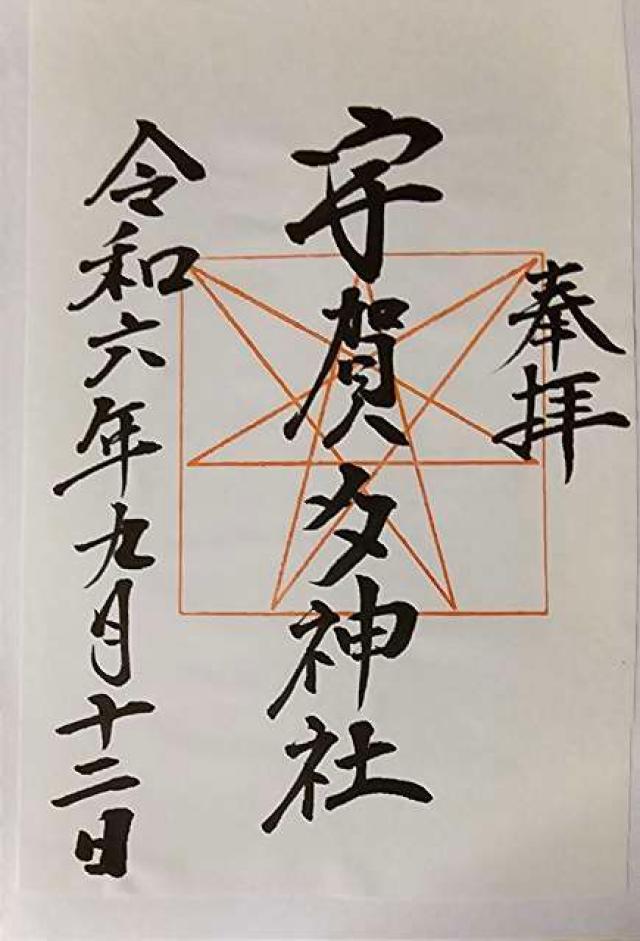 奉拝
宇賀多神社
令和六年九月十二日